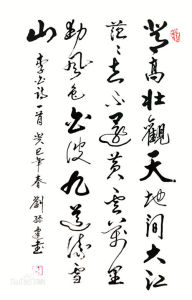 登高壮觀天地間大江
茫茫去不還黄雲萬里
動風色白波九道流雪
山
李白詩一首癸巳年春劉